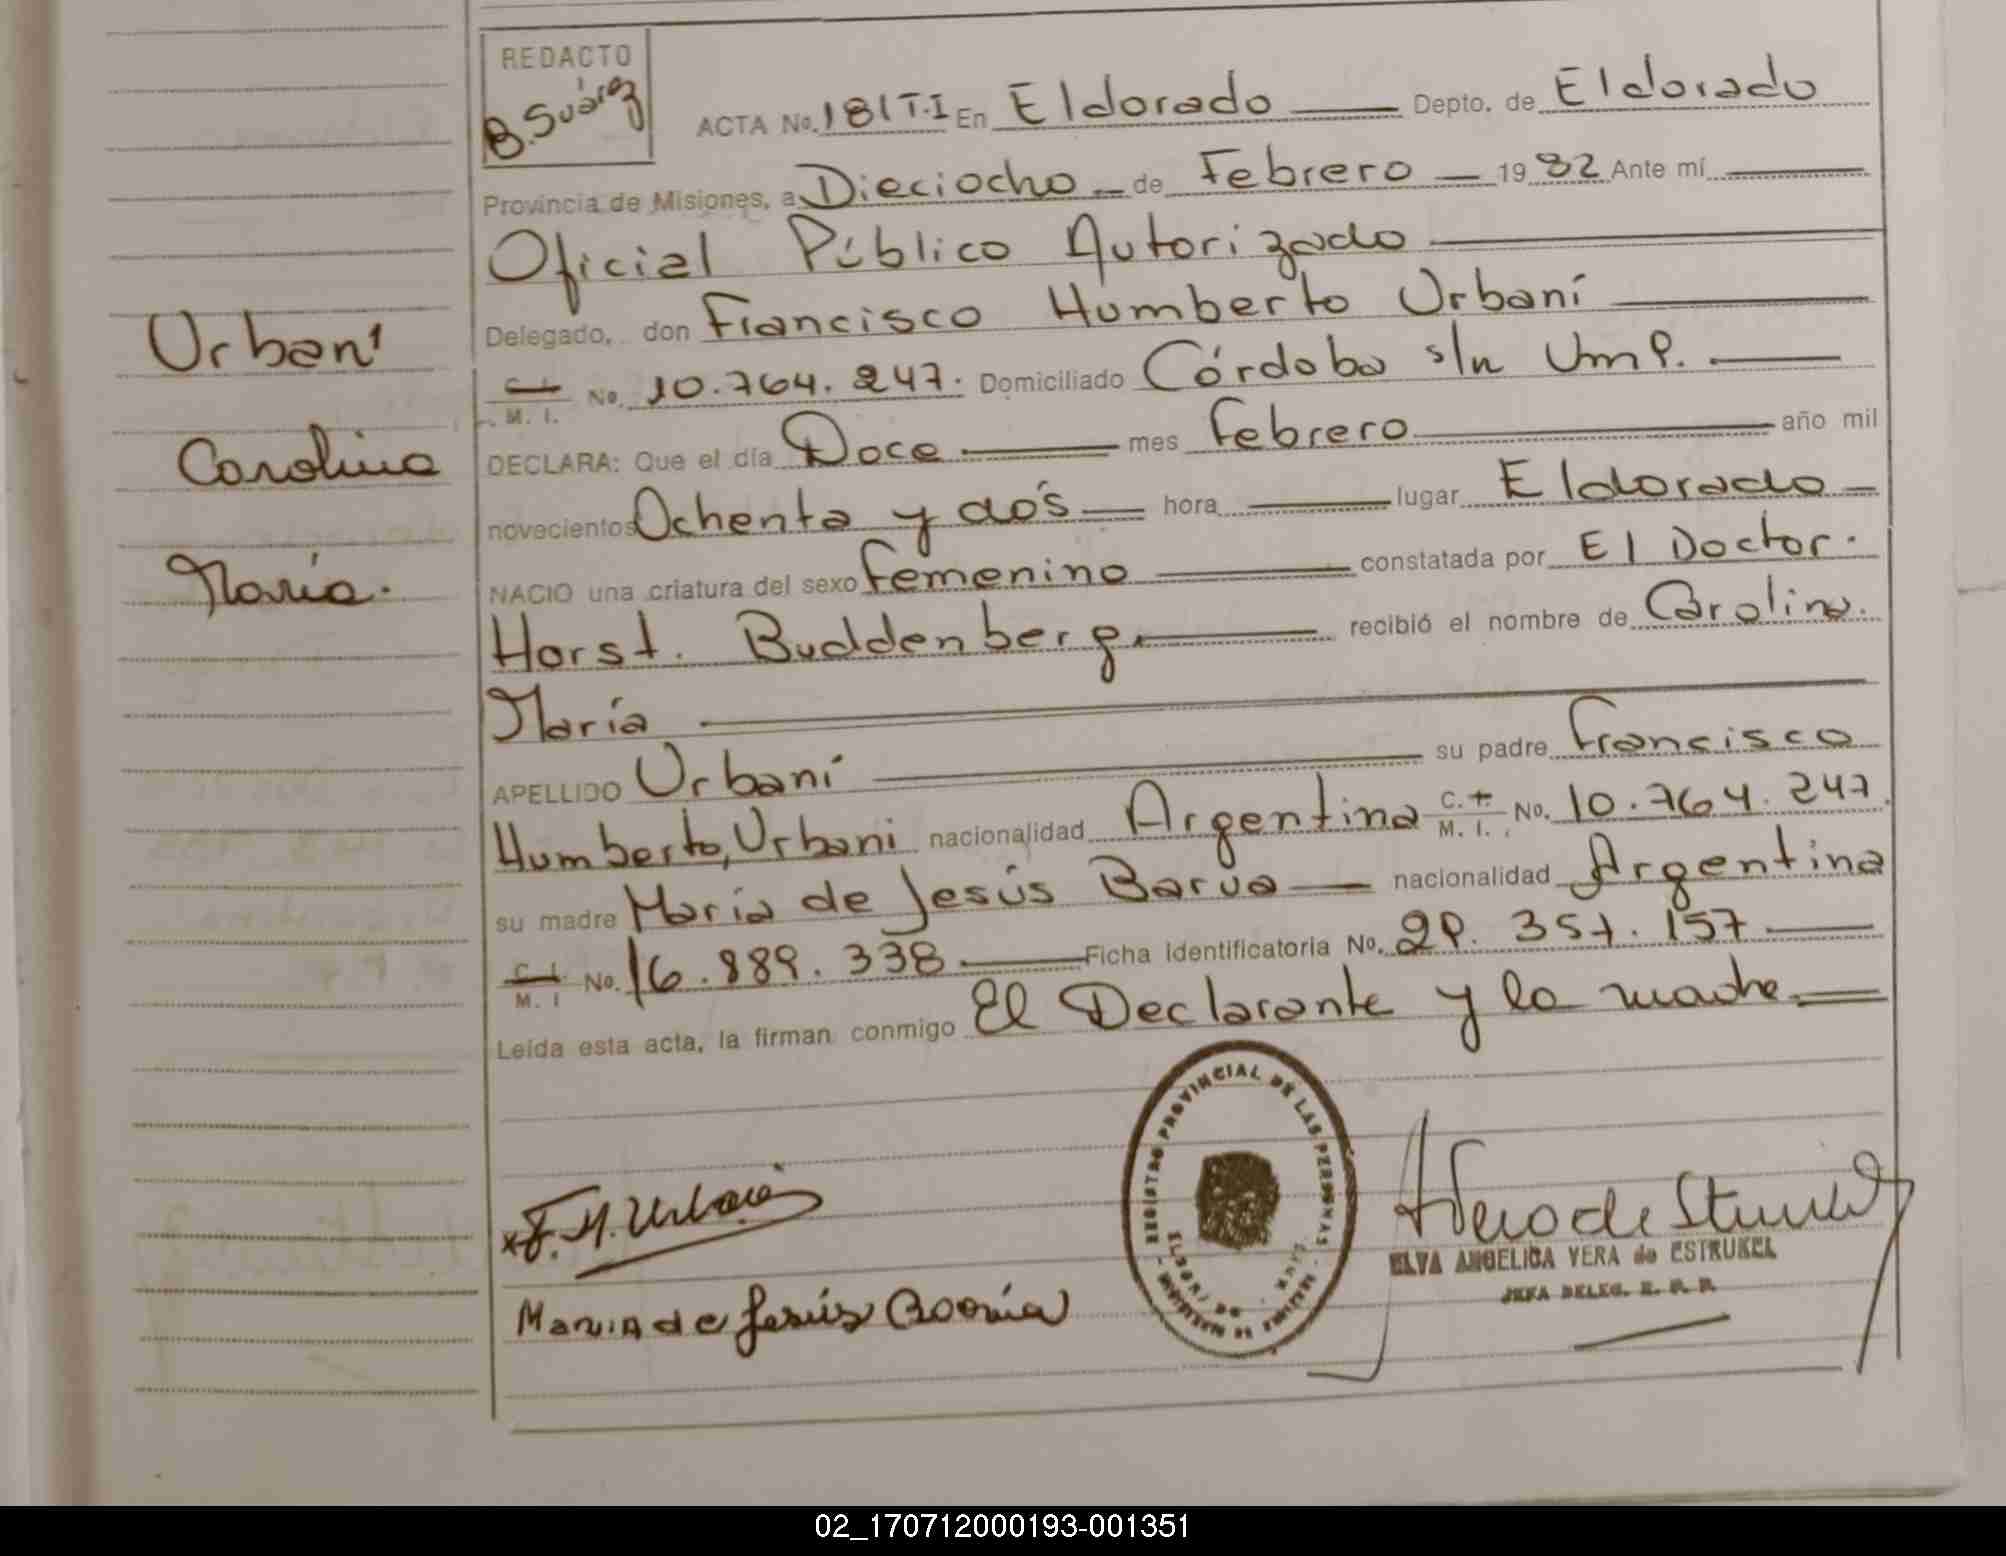 REDACTO
B. Suárez
ACTA No. 181 T.I En Eldorado Depto. de Eldorado
Provincia de Misiones, a Dieciocho de Febrero 1982 Ante mí
Oficial Público Autorizado
Delegado, don Francisco Humberto Urbani
C. I. M. I. No. 10.764.247. Domiciliado Córdoba s/n
DECLARA: Que el día Doce mes Febrero año mil
novecientos Ochenta y dos hora lugar Eldorado
NACIO una criatura del sexo Femenino constatada por El Doctor.
Horst. Buddenberg. recibió el nombre de Carolina.
María
APELLIDO Urbani su padre Francisco
Humberto, Urbani nacionalidad Argentina C. I. M. I. No. 10.764.247.
su madre María de Jesús nacionalidad Argentina
C. I. M. I No. 16.889.338 Ficha Identificatoria No. 357.157
Leída esta acta, la firman conmigo El Declarante y la madre
Urbani
Carolina
María.
F. H. Urbani
Maria de Jesús
REGISTRO PROVINCIAL DE LAS PERSONAS
ELVA ANGELICA VERA de ESTRUKEL
JEFA DELEG. R. P. P.
02_170712000193-001351